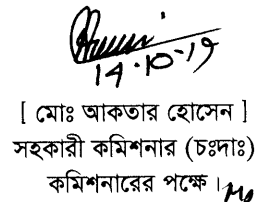 14-10-19
[ মোঃ আকতার হোসেন ]
সহকারী কমিশনার (চঃদাঃ)
কমিশনারের পক্ষে।